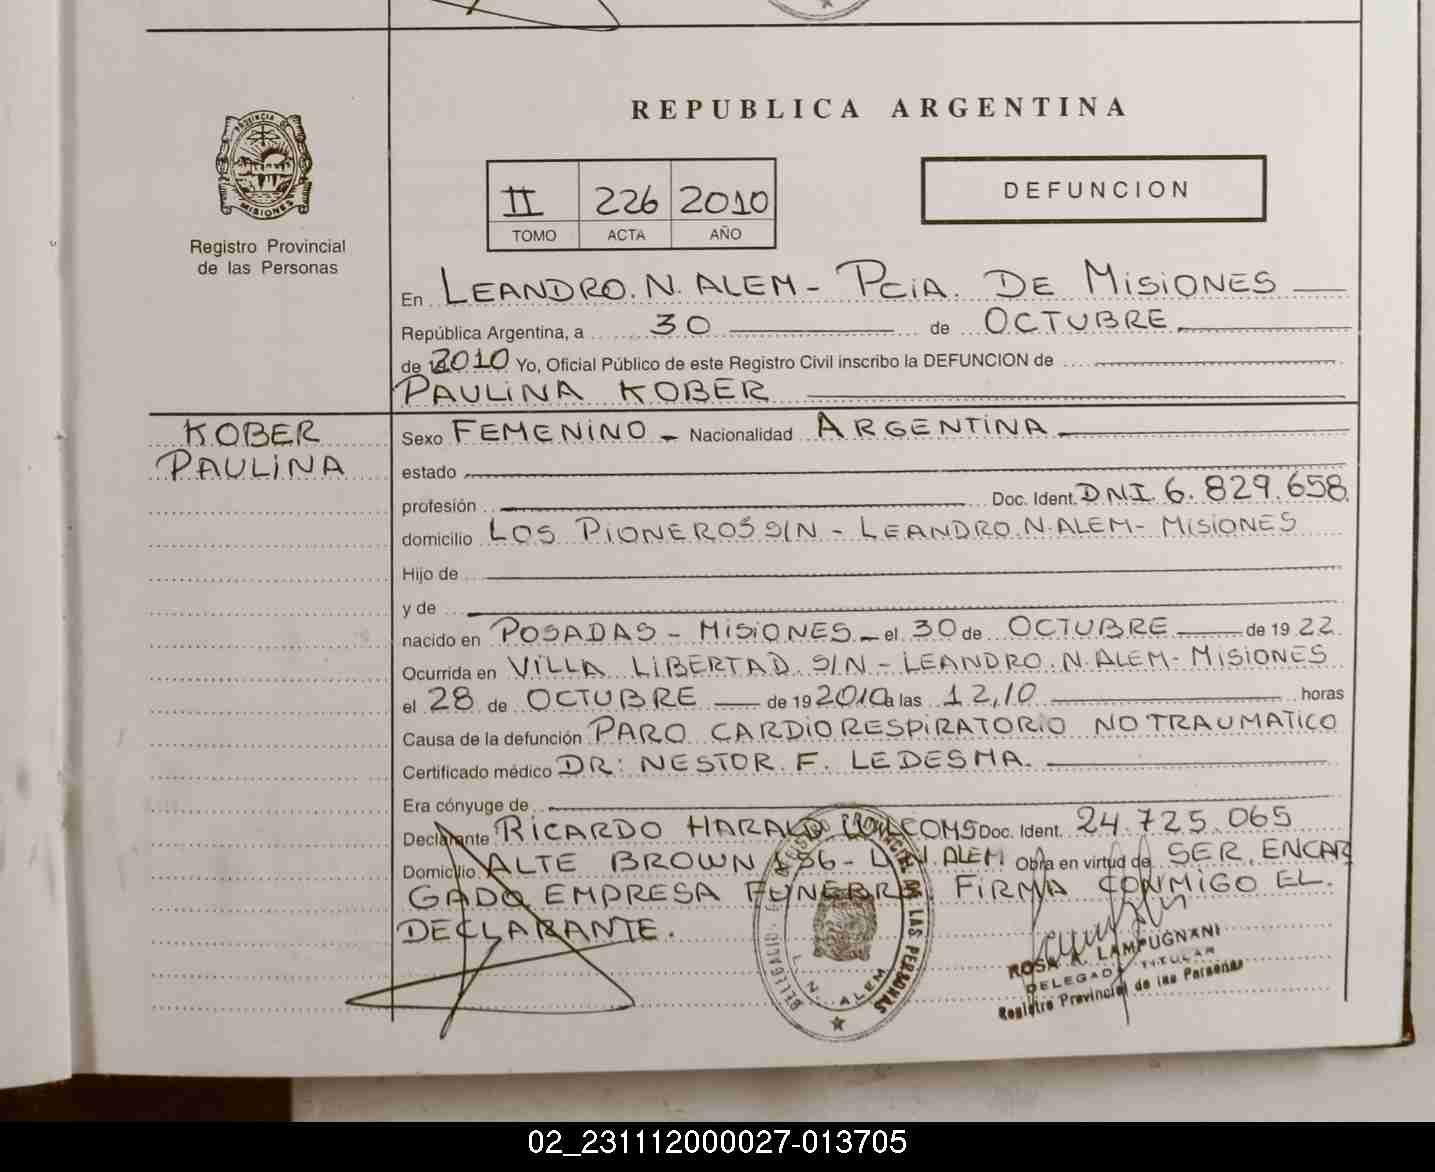 PROVINCIA DE
MISIONES
Registro Provincial
de las Personas
REPUBLICA ARGENTINA
II 226 2010
TOMO ACTA AÑO
DEFUNCION
En LEANDRO. N. ALEM - PCiA. DE MiSiONES
República Argentina, a 30 de OCTUBRE
de 2010 Yo, Oficial Público de este Registro Civil inscribo la DEFUNCION de
PAULiNA KOBER
KOBER
PAULiNA
Sexo FEMENiNO - Nacionalidad ARGENTiNA
estado
profesión Doc. Ident. DNI. 6.829.658
domicilio LOS PiONEROS S/N - LEANDRO.N.ALEM- MiSiONES
Hijo de
y de
nacido en POSADAS - MiSiONES - el 30 de OCTUBRE de 19 22
Ocurrida en ViLLA LiBERTAD S/N - LEANDRO.N.ALEM- MiSiONES
el 28 de OCTUBRE de 19 2010 a las 12,10 horas
Causa de la defunción PARO CARDiORESPiRATORiO NO TRAUMATiCO
Certificado médico DR: NESTOR F. LEDESMA.
Era cónyuge de
Declarante RiCARDO HARALD Doc. Ident. 24.725.065
Domicilio ALTE BROWN 156 - L.N.ALEM Obra en virtud de SER ENCAR
GADO EMPRESA FUNEBRE. FiRMA CONMIGO EL
DECLARANTE.
REGISTRO PROVINCIAL DE LAS PERSONAS
L. N. ALEM
ROSA A. LAMPUGNANI
DELEGADA TITULAR
Registro Provincial de las Personas
02_231112000027-013705